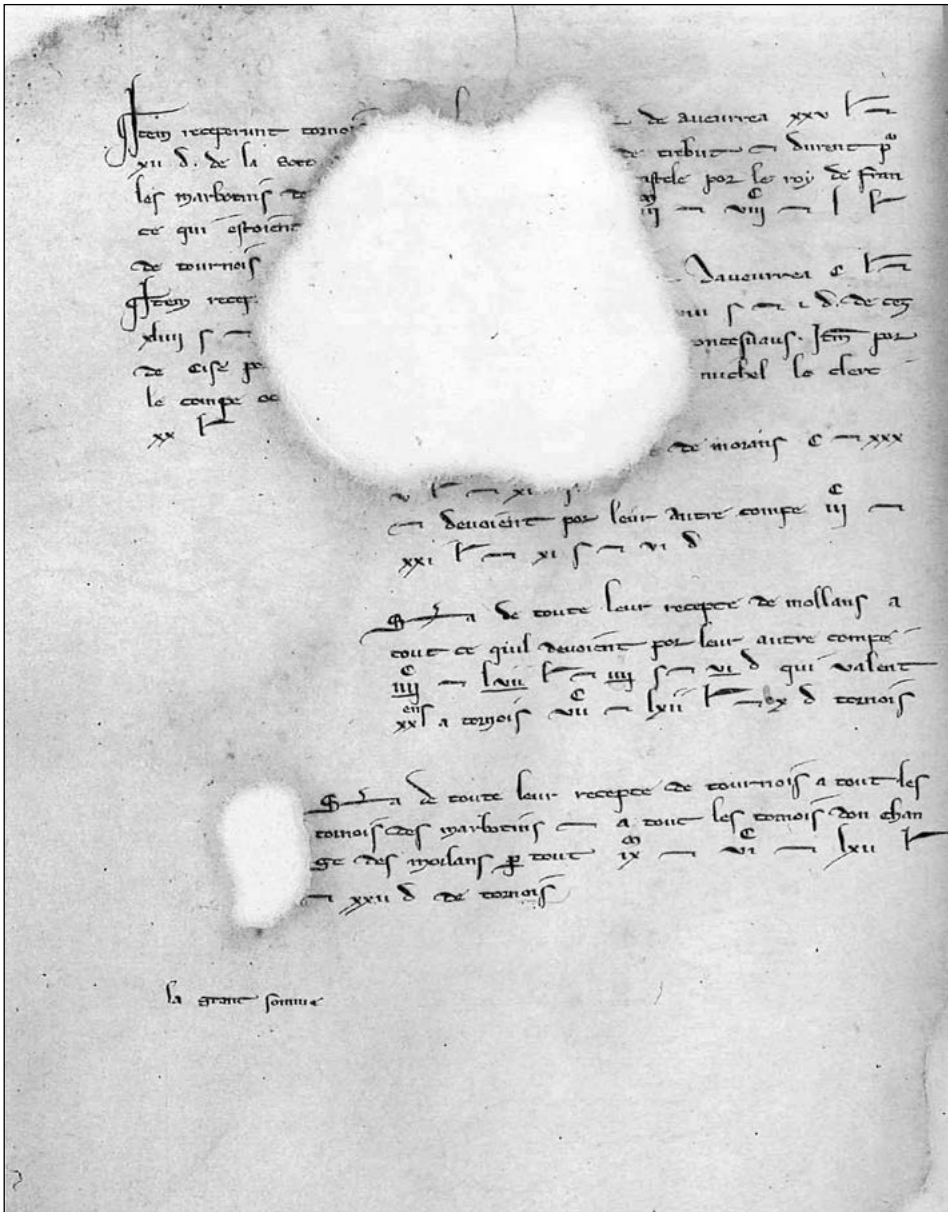 Item receperunt torno de aueurrea xxv l
xii d. de la de trebut durent
les marbotins de astele por le roy de fran
ce qui estoient iij m viij c l l
de tournois
Item recep daueurrea c l
xliiij s viii s i d. de ces
de cise Item por
le compe michel le clerc
xx l
de morans c xxx
v l xi
devoient por leur autre compe iij c
xxi l xi s vi d
de toute leur recepte de mollans a
tout ce quil devoient por leur autre compe
iiij c lvii l iiij s vi d qui valent
a tornois vii c lxii l d tornois
de toute leur recepte de tournois a tout les
tornois des marbotins a tout les tornois don chan
ge des morlans tout ix m vi c lxii l
xxii d de tornois
la grant somme